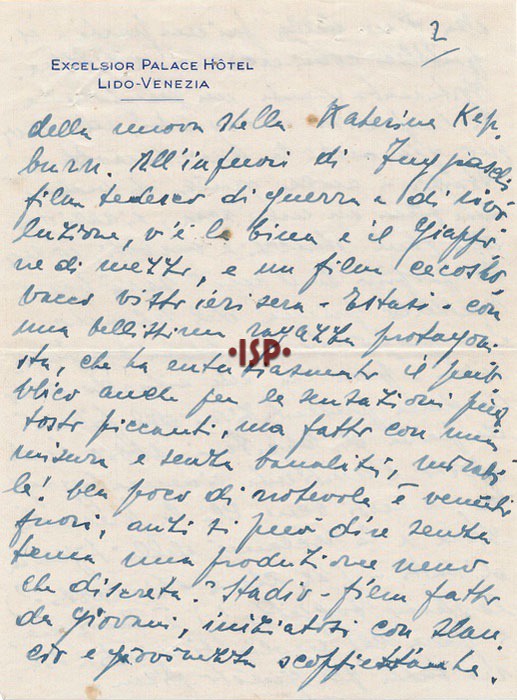 2
EXCELSIOR PALACE HÔTEL
LIDO-VENEZIA
della nuova stella Katerina Kep
burn. All'infuori di
film tedesco di guerra e di rivo
luzione, v'è la bina e il Giappo
ne di mezzo, e un film cecoslo
vacco visto ieri sera - Estasi - con
una bellissima ragazza protagoni
sta, che ha entusiasmato il pub
blico anche per le sensazioni piut
tosto piccanti, ma fatto con una
misura e senza banalità, mirabi
le! ben poco di notevole è venuto
fuori, anzi si può dire senza
tema una produzione meno
che discreta. "Stadio - film fatto
da giovani, iniziatosi con slan
cio e giovinezza scoppiettante.
•ISP•